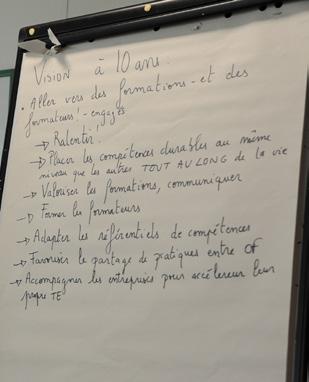 VISION à 10 ans :
• Aller vers des formations - et des
formateurs ! - engagés
→ Ralentir !
→ Placer les compétences durables au même
niveau que les autres TOUT AU LONG de la vie
→ Valoriser les formations, communiquer
→ Former les formateurs
→ Adapter les référentiels de compétences
→ Favoriser le partage de pratiques entre OF
→ Accompagner les entreprises pour accélereur leur
propre TE